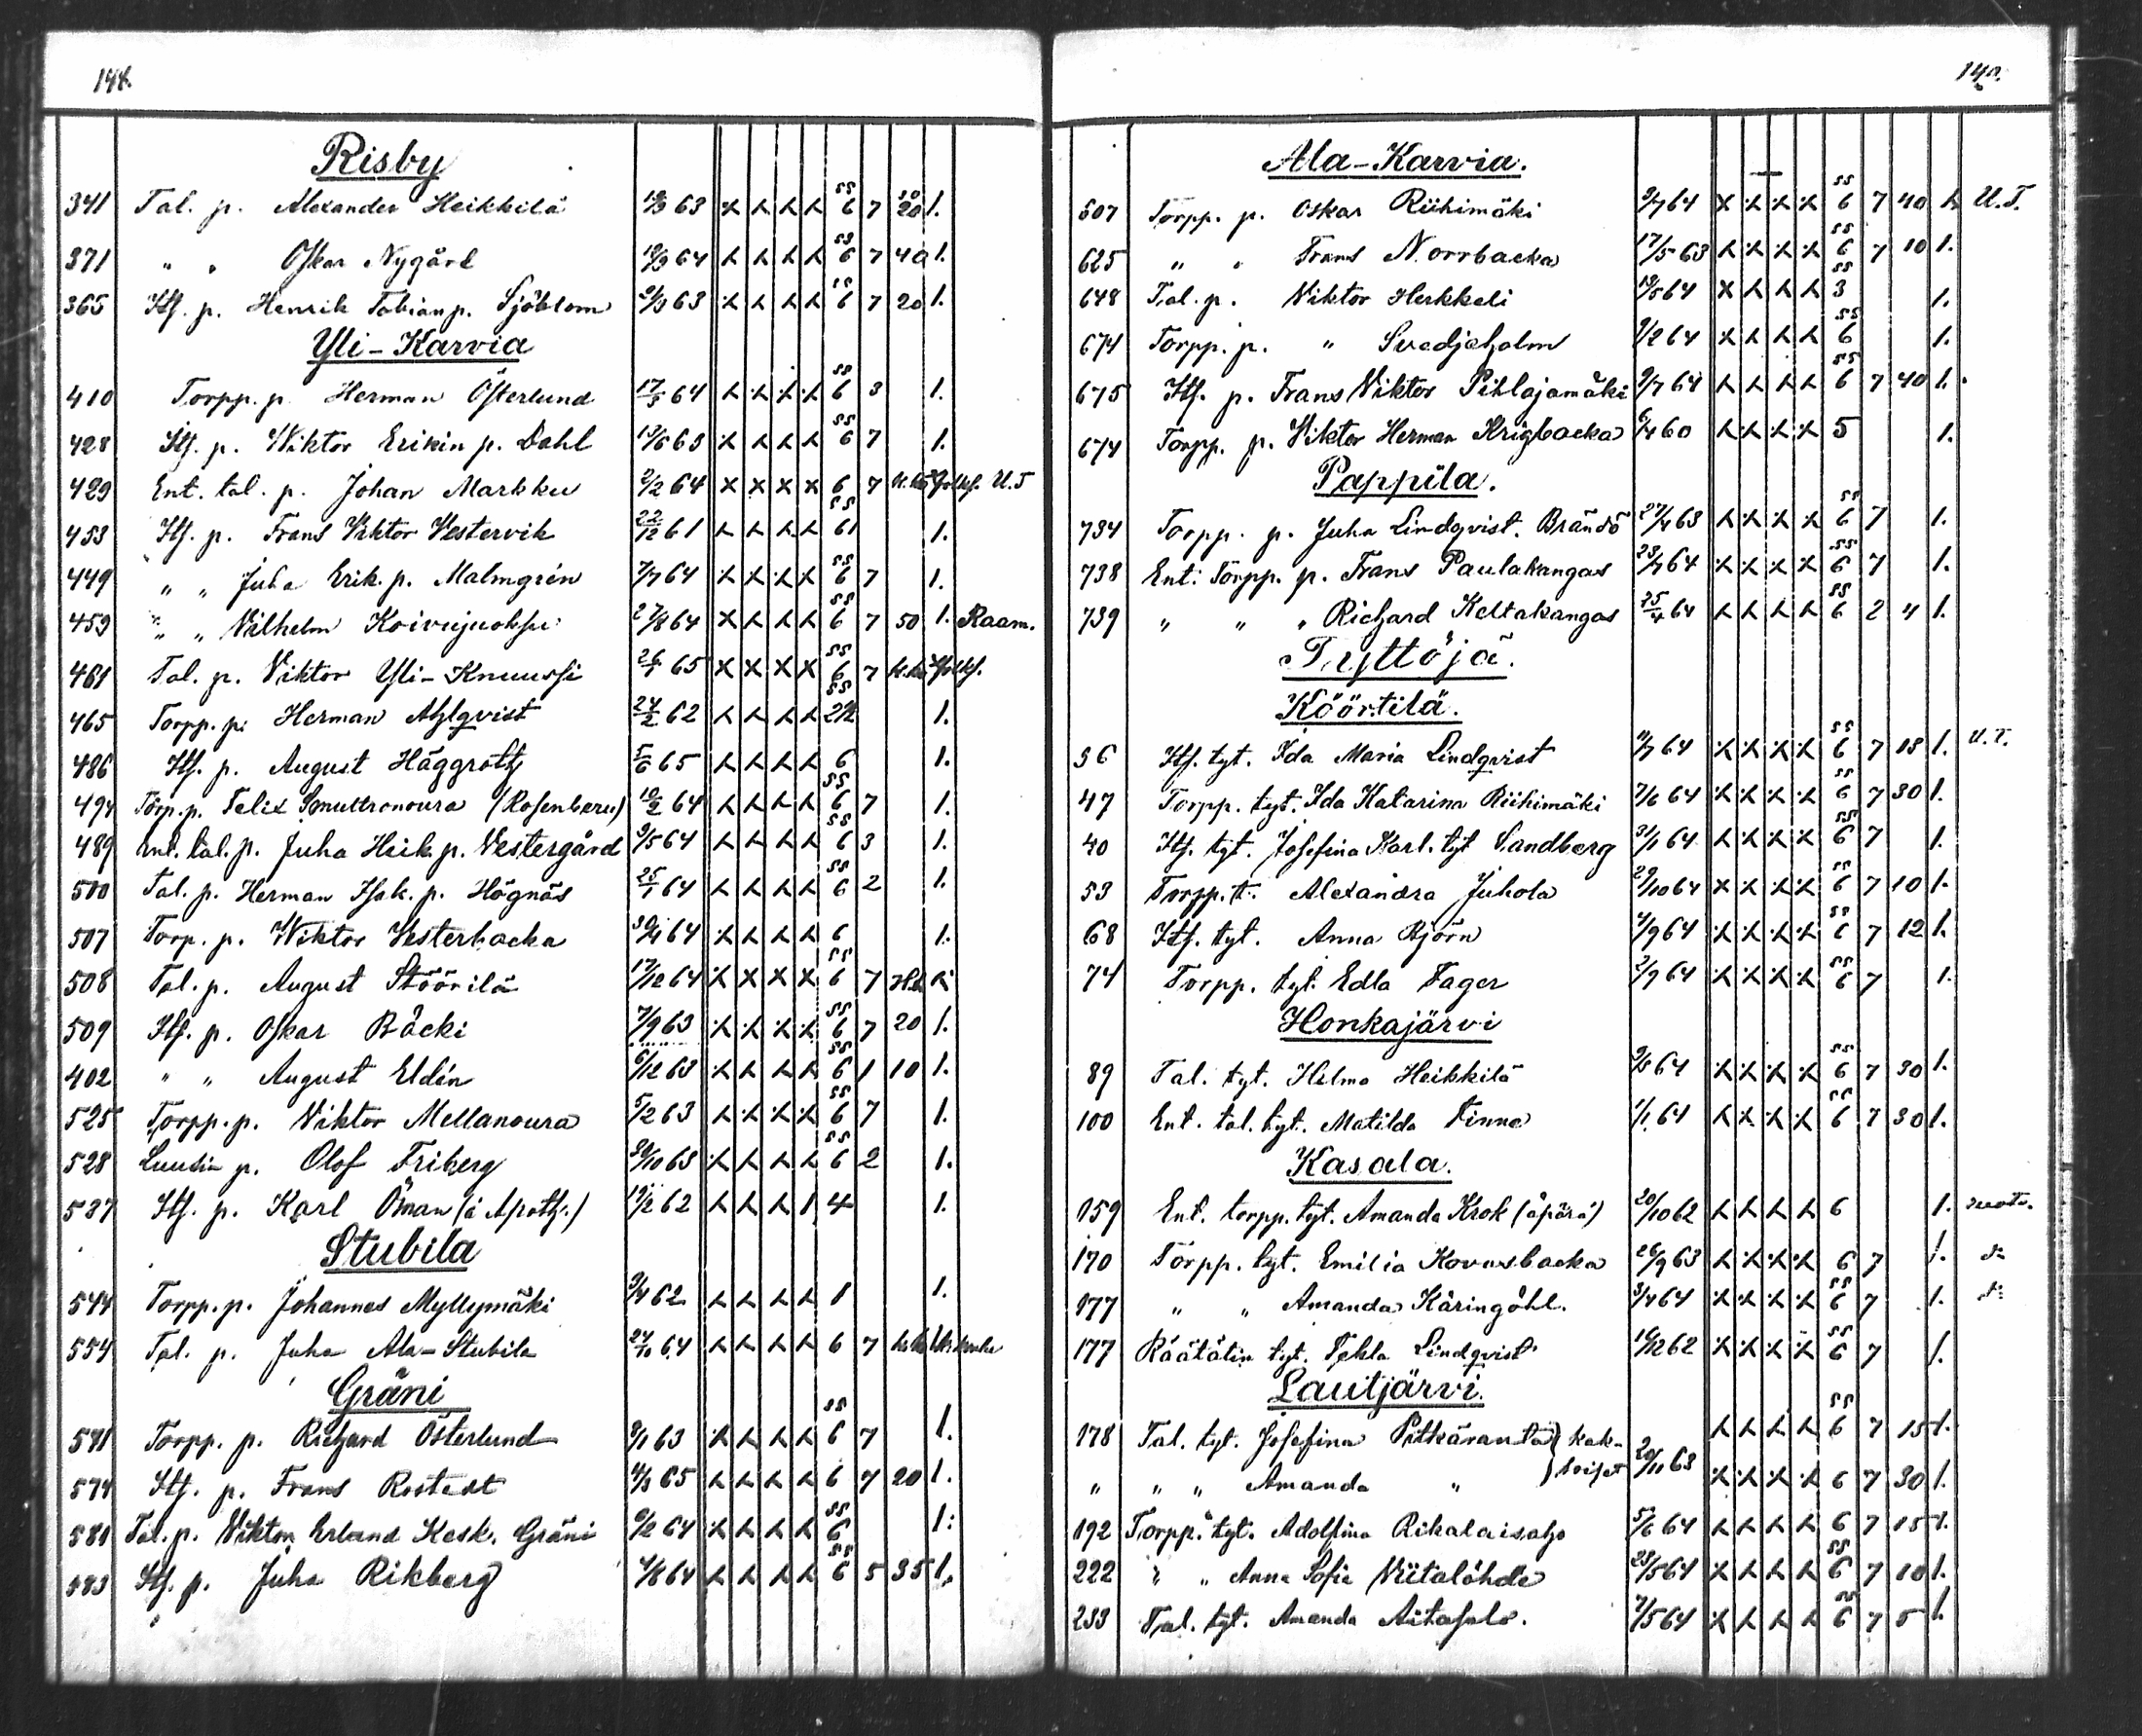 148.
Risby
341 Tal. p. Alexander Heikkilä 63 x x x x 6 7 20 1.
371 " " Oskar Nygård 64 x x x x 6 7 40 1.
365 Its. p. Henrik Fabianp. Sjöblom 63 x x x x 6 7 20 1.
Yli-Karvia
410 Torpp. p. Herman Österlund 64 x x x x 6 3 1.
428 Its. p. Wiktor Erikin p. Dahl 63 x x x x 6 7 1.
429 Ent. tal. p. Johan Markku 2/2 64 x x x x 6 7 U.T
453 Its. p. Frans Viktor Vestervik 22/12 61 x x x x 61 1.
449 " " Juha Erik. p. Malmgrén 7/7 64 x x x x 6 7 1.
459 " " Vilhelm Koivujuoksu 27/8 64 x x x x 6 7 50 1. Raam.
461 Tal. p. Viktor Yli-Knuussi 65 x x x x 6 7
465 Torpp. p. Herman Ahlqvist 24/2 62 x x x x 2 1/2 1.
486 Its. p. August Häggroth 5/6 65 x x x x 6 1.
494 Torp. p. Felix Smultronoura (Rosenberg) 64 x x x x 6 7 1.
489 Ent. tal. p. Juha Heik. p. Vestergård 9/5 64 x x x x 6 3 1.
500 Tal. p. Herman Isak. p. Högnäs 25/1 64 x x x x 6 2 1.
507 Torp. p. Wiktor Vesterbacka 64 x x x x 6 1.
508 Tal. p. August Stöörilä 17/12 64 x x x x 6 7
509 Its. p. Oskar Bäcki 7/9 63 x x x x 6 7 20 1.
402 " " August Eldén 6/12 63 x x x x 6 1 10 1.
525 Torpp. p. Viktor Mellanoura 5/2 63 x x x x 6 7 1.
528 p. Olof Friberg 30/10 63 x x x x 6 2 1.
537 Its. p. Karl Öman (ä Apoth.) 62 x x x 1 4 1.
Stubila
544 Torpp. p. Johannes Myllymäki 62 x x x x 1 1.
554 Tal. p. Juha Ala-Stubila 24/10 64 x x x x 6 7
Gräni
571 Torpp. p. Richard Österlund 63 x x x x 6 7 1.
574 Its. p. Frans Rostedt 4/3 65 x x x x 6 7 20 1.
580 Tal. p. Viktor Erland Kesk. Gräni 64 x x x x 6 1.
583 Its. p. Juha Rikberg 64 x x x x 6 5 35 1.
Ala-Karvia.
507 Torpp. p. Oskar Riihimäki 9/7 64 x x x x 6 7 40 U.T.
625 " " Frans Norrbacka 17/5 63 x x x x 6 7 10 1.
648 Tal. p. Viktor Herkkeli 64 x x x x 3 1.
674 Torpp. p. " Svedjeholm 64 x x x x 6 1.
675 Its. p. Frans Viktor Pihlajamäki 9/7 64 x x x x 6 7 40 1.
674 Torpp. p. Viktor Herman Krigbacka 60 x x x x 5 1.
Pappila.
734 Torpp. p. Juha Lindqvist. Brändö 27/4 63 x x x x 6 7 1.
738 Ent. Torpp. p. Frans Paulakangas 64 x x x x 6 7 1.
739 " " " Richard Keltakangas 25/4 64 x x x x 6 2 4 1.
Tyttöjä.
Köörtilä.
36 Its. tyt. Ida Maria Lindqvist 64 x x x x 6 7 18 1. U.T.
47 Torpp. tyt. Ida Katarina Riihimäki 7/6 64 x x x x 6 7 30 1.
40 Its. tyt. Josefina Karl. tyt Sandberg 31/1 64 x x x x 6 7 1.
53 Torpp. t. Alexandra Juhola 29/10 64 x x x x 6 7 10 1.
68 Its. tyt. Anna Björn 4/9 64 x x x x 6 7 12 1.
74 Torpp. tyt. Edla Fager 2/9 64 x x x x 6 7 1.
Honkajärvi
89 Tal. tyt. Helma Heikkilä 64 x x x x 6 7 30 1.
100 Ent. tal. tyt. Matilda Finne 1/1 64 x x x x 6 7 30 1.
Kasala.
159 Ent. torpp. tyt. Amanda Krok (äpärä) 20/10 62 x x x x 6 1. ruots.
170 Torpp. tyt. Emilia Korvusbacka 26/9 63 x x x x 6 7 1.
177 " " Amanda Käringöhl. 3/4 64 x x x x 6 7 1.
177 Räätälin tyt. Tekla Lindqvist 16/12 62 x x x x 6 7 1.
Lautjärvi.
178 Tal. tyt. Josefina Pitkäranta } kak- x x x x 6 7 15 1.
" " " Amanda " } soiset 20/11 63 x x x x 6 7 30 1.
192 Torpp. tyt. Adolfina Rikalaisaho 5/6 64 x x x x 6 7 15 1.
222 " " Anna Sofia Viitalähde 23/5 64 x x x x 6 7 10 1.
233 Tal. tyt. Amanda Aitasalo. 7/5 64 x x x x 6 7 5 1.